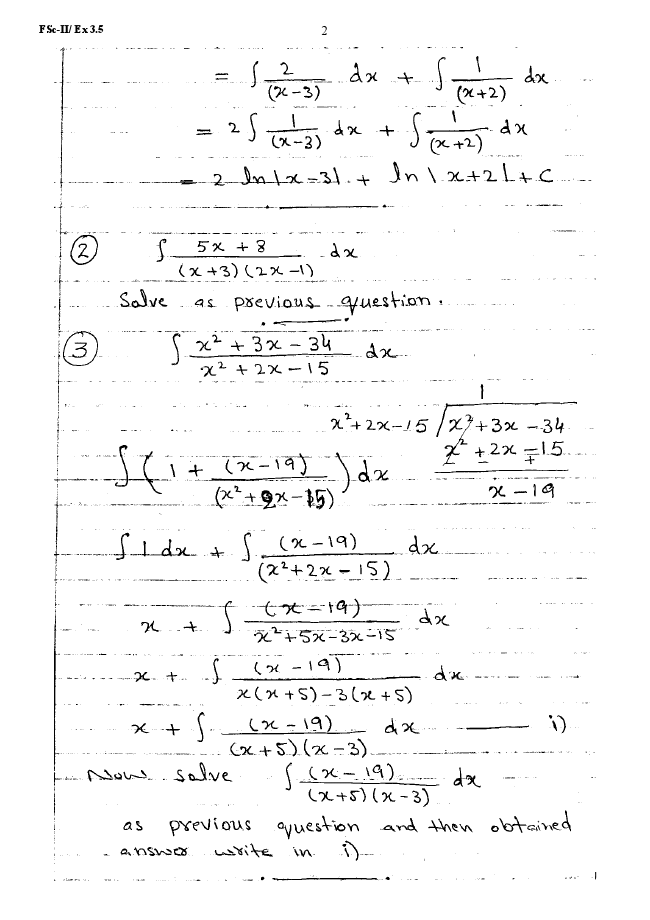 FSc-II/ Ex 3.5
2
= ∫ 2/(x-3) dx + ∫ 1/(x+2) dx
= 2 ∫ 1/(x-3) dx + ∫ 1/(x+2) dx
= 2 ln|x-3| + ln|x+2| + C
② ∫ 5x + 8/(x+3)(2x-1) dx
Solve as previous question.
③ ∫ x² + 3x - 34/x² + 2x - 15 dx
1
x²+2x-15 / x²+3x-34
x²+2x-15
- - +
x-19
∫ (1 + (x-19)/(x²+2x-15)) dx
∫ 1 dx + ∫ (x-19)/(x²+2x-15) dx
x + ∫ (x-19)/x²+5x-3x-15 dx
x + ∫ (x-19)/x(x+5)-3(x+5) dx
x + ∫ (x-19)/(x+5)(x-3) dx —— i)
Now solve ∫ (x-19)/(x+5)(x-3) dx
as previous question and then obtained
answer write in i)